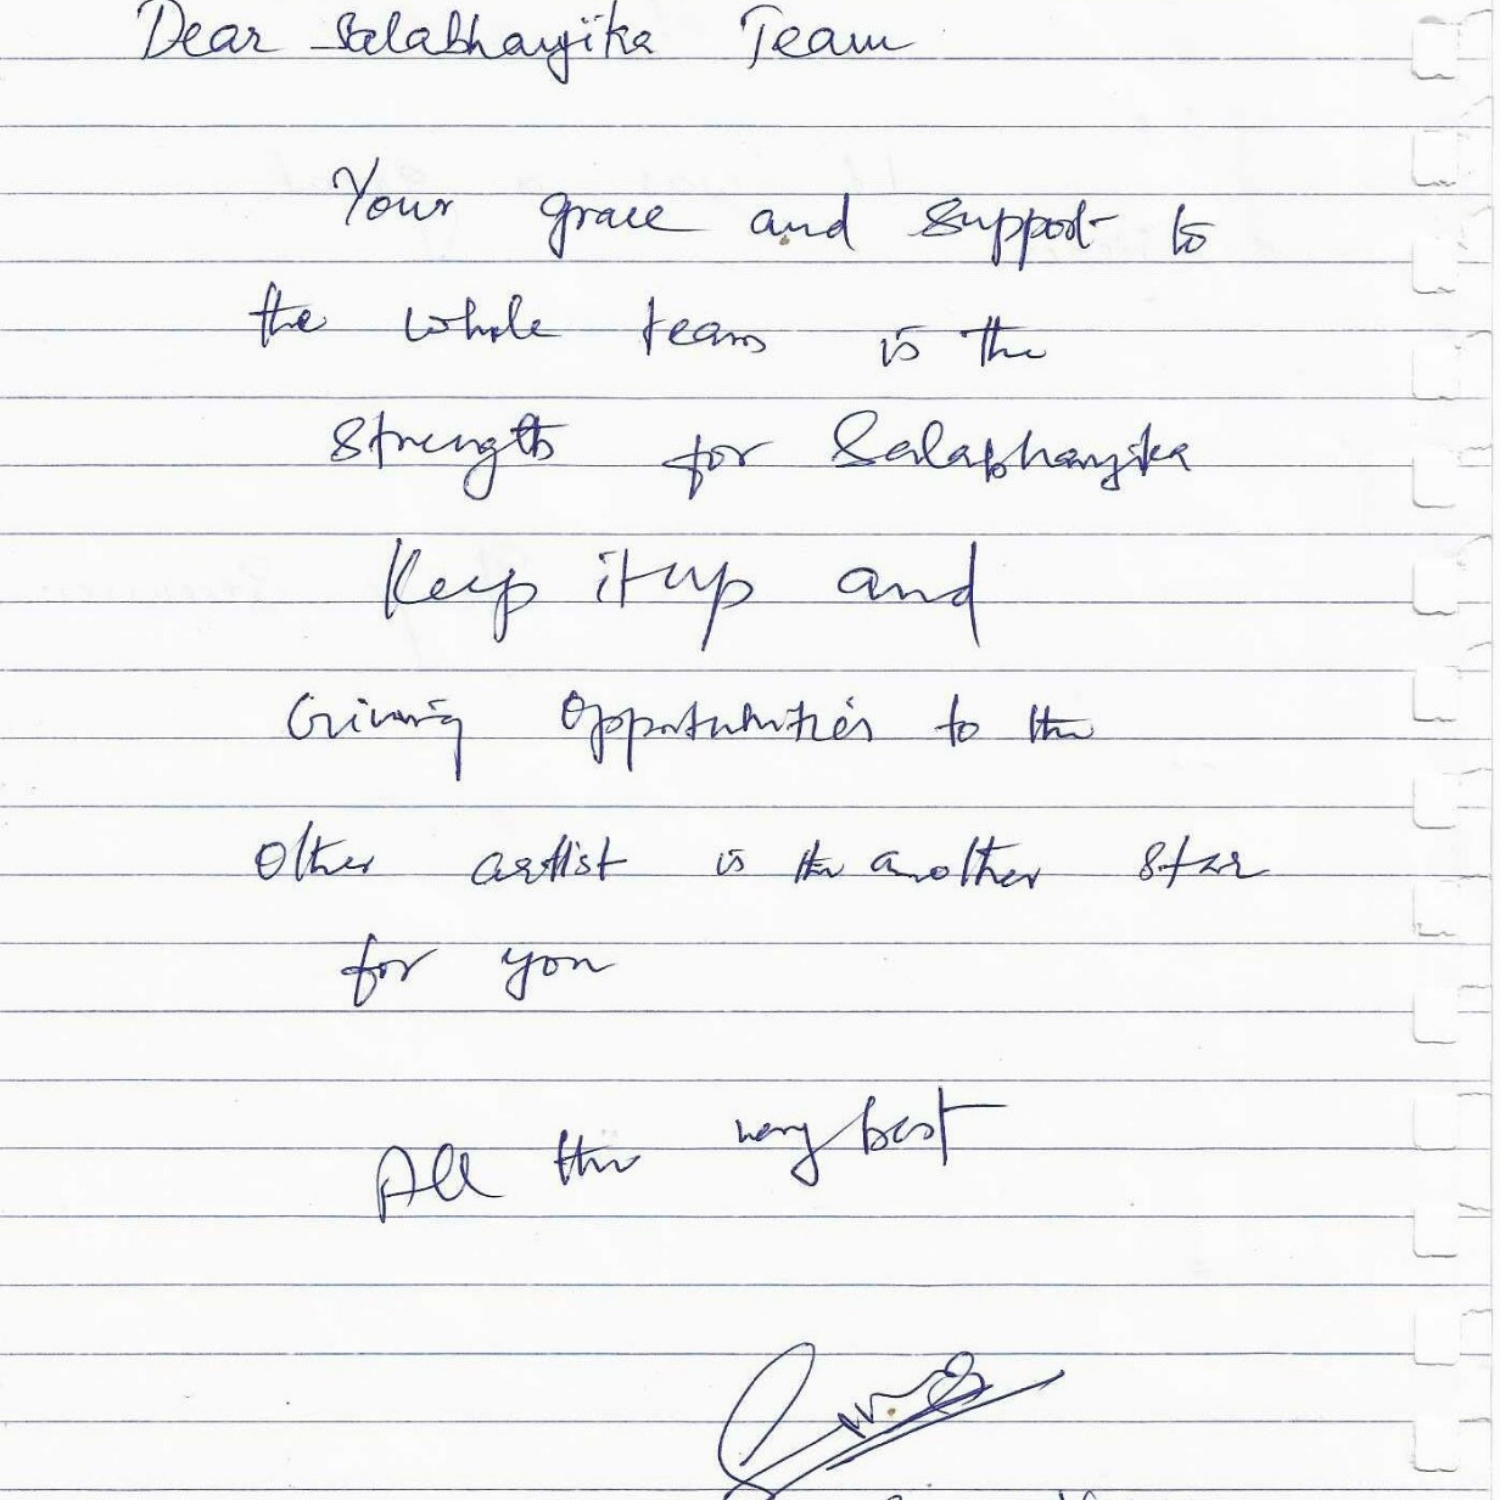 Dear Salabhanjika Team
Your grace and support to
the whole team is the
strength for Salabhanjika
Keep it up and
Giving opportunities to the
other artist is the another star
for you
All the very best